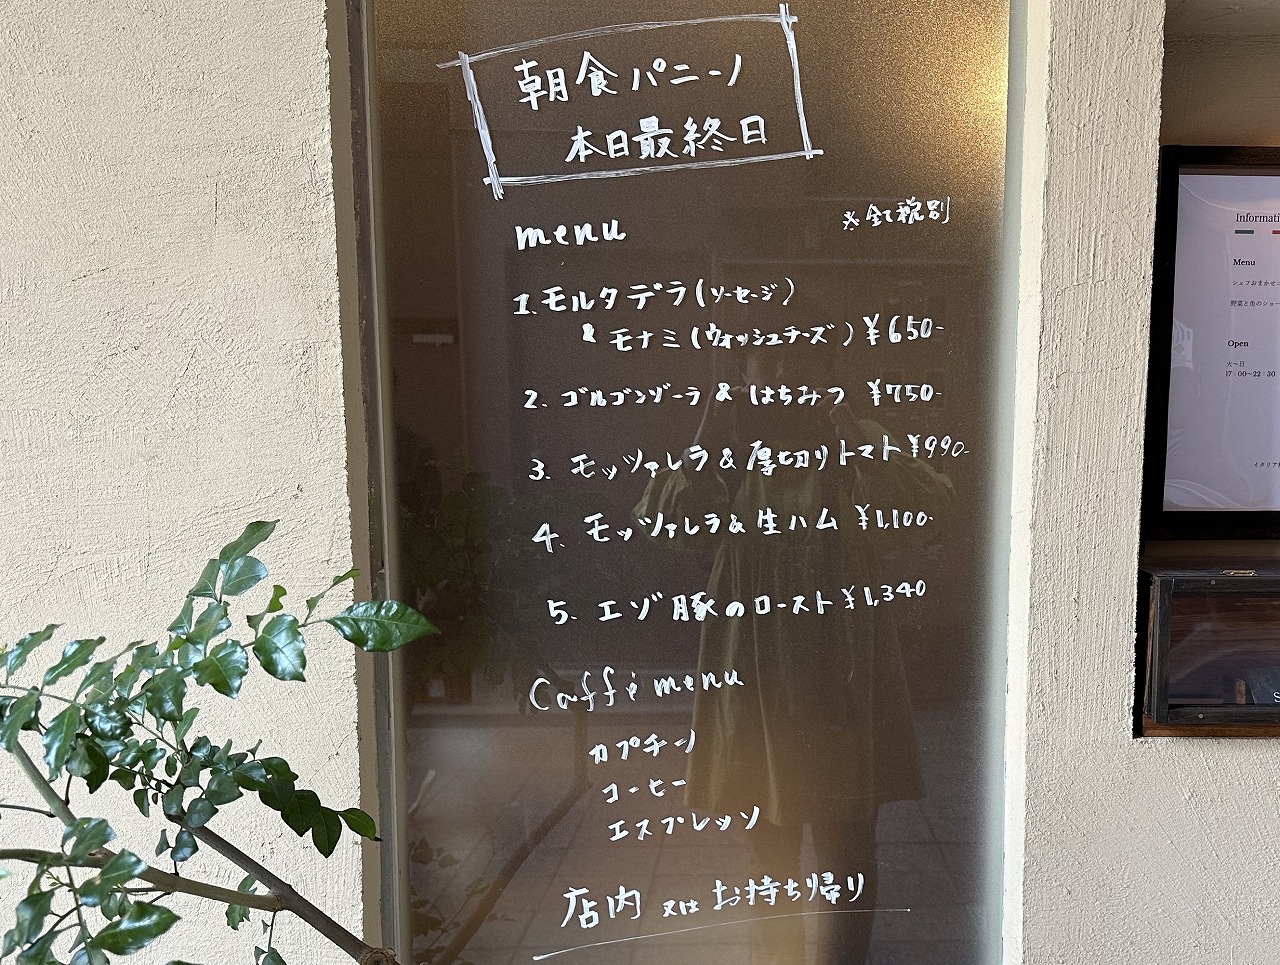 朝食パニーノ
本日最終日
※全て税別
menu
1.モルタデラ(ソーセージ)
& モナミ(ウォッシュチーズ)¥650-
2. ゴルゴンゾーラ & はちみつ ¥750-
3. モッツァレラ & 厚切りトマト ¥990-
4. モッツァレラ & 生ハム ¥1,100-
5. エゾ豚のロースト ¥1,340
Caffé menu
カプチーノ
コーヒー
エスプレッソ
店内 又は お持ち帰り
Informati
Menu
シェフおまかせ
野菜と魚のショー
Open
火～日
17:00～22:30
イタリア
S